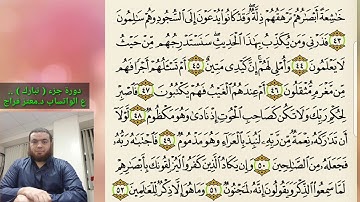 خَٰشِعَةً أَبۡصَٰرُهُمۡ تَرۡهَقُهُمۡ ذِلَّةٞۖ وَقَدۡ كَانُواْ يُدۡعَوۡنَ إِلَى ٱلسُّجُودِ وَهُمۡ سَٰلِمُونَ
٤٣ فَذَرۡنِي وَمَن يُكَذِّبُ بِهَٰذَا ٱلۡحَدِيثِۖ سَنَسۡتَدۡرِجُهُم مِّنۡ حَيۡثُ
لَا يَعۡلَمُونَ ٤٤ وَأُمۡلِي لَهُمۡۚ إِنَّ كَيۡدِي مَتِينٌ ٤٥ أَمۡ تَسۡـَٔلُهُمۡ أَجۡرٗا فَهُم
مِّن مَّغۡرَمٖ مُّثۡقَلُونَ ٤٦ أَمۡ عِندَهُمُ ٱلۡغَيۡبُ فَهُمۡ يَكۡتُبُونَ ٤٧ فَٱصۡبِرۡ
لِحُكۡمِ رَبِّكَ وَلَا تَكُن كَصَاحِبِ ٱلۡحُوتِ إِذۡ نَادَىٰ وَهُوَ مَكۡظُومٞ ٤٨ لَّوۡلَآ
أَن تَدَٰرَكَهُۥ نِعۡمَةٞ مِّن رَّبِّهِۦ لَنُبِذَ بِٱلۡعَرَآءِ وَهُوَ مَذۡمُومٞ ٤٩ فَٱجۡتَبَٰهُ رَبُّهُۥ
فَجَعَلَهُۥ مِنَ ٱلصَّٰلِحِينَ ٥٠ وَإِن يَكَادُ ٱلَّذِينَ كَفَرُواْ لَيُزۡلِقُونَكَ بِأَبۡصَٰرِهِمۡ
لَمَّا سَمِعُواْ ٱلذِّكۡرَ وَيَقُولُونَ إِنَّهُۥ لَمَجۡنُونٞ ٥١ وَمَا هُوَ إِلَّا ذِكۡرٞ لِّلۡعَٰلَمِينَ ٥٢
دورة جزء ( تبارك ) ..
ع الواتساب د.معتز فراج